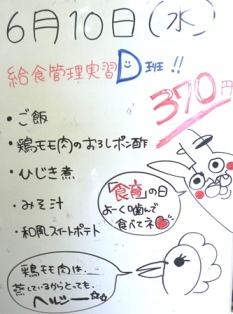 6月10日(水)
給食管理実習D班!!
370円
・ご飯
・鶏モモ肉のおろしポン酢
・ひじき煮
・みそ汁
・和風スイートポテト
「食育」の日
よーく噛んで
食べてネ
鶏モモ肉は、
蒸しているからとても
ヘルシー☆☆